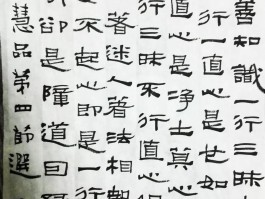 善知識一行三昧
行一直心是也如
直心是淨土莫心
行三昧不行直心
著迷人著法相執
不起心即是一行
卻是障道因
慧品第四節選